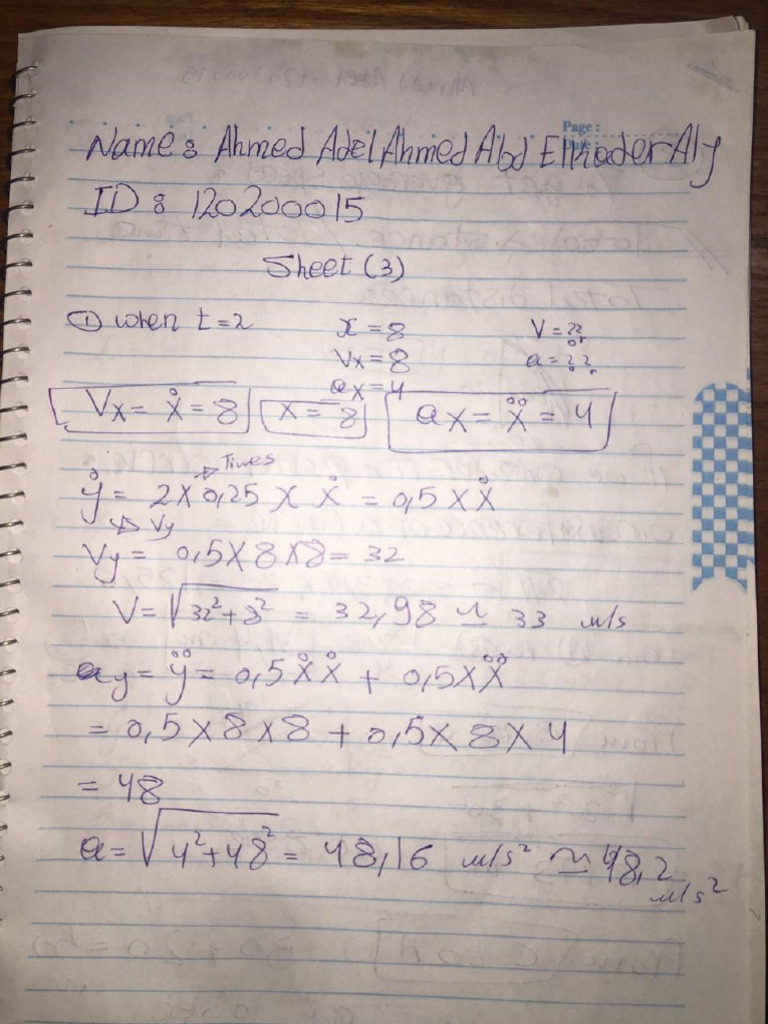 Page :
Date :
Name: Ahmed Adel Ahmed Abd Elkader Aly
ID: 120200015
Sheet (3)
① when t=2 x=8 V=??
Vx=8 or a=??
ax=4
Vx= ẋ = 8 x = 8 ax = ẍ = 4
→ Times
ẏ = 2x0,25 x ẋ = 0,5xẋ
↳ Vy
Vy = 0,5x8x8= 32
V= √32²+8² = 32,98 ≃ 33 m/s
ay = ÿ = 0,5ẋẋ + 0,5xẍ
= 0,5x8x8 + 0,5x8x4
= 48
a= √4²+48² = 48,16 m/s² ≃ 48,2
m/s²